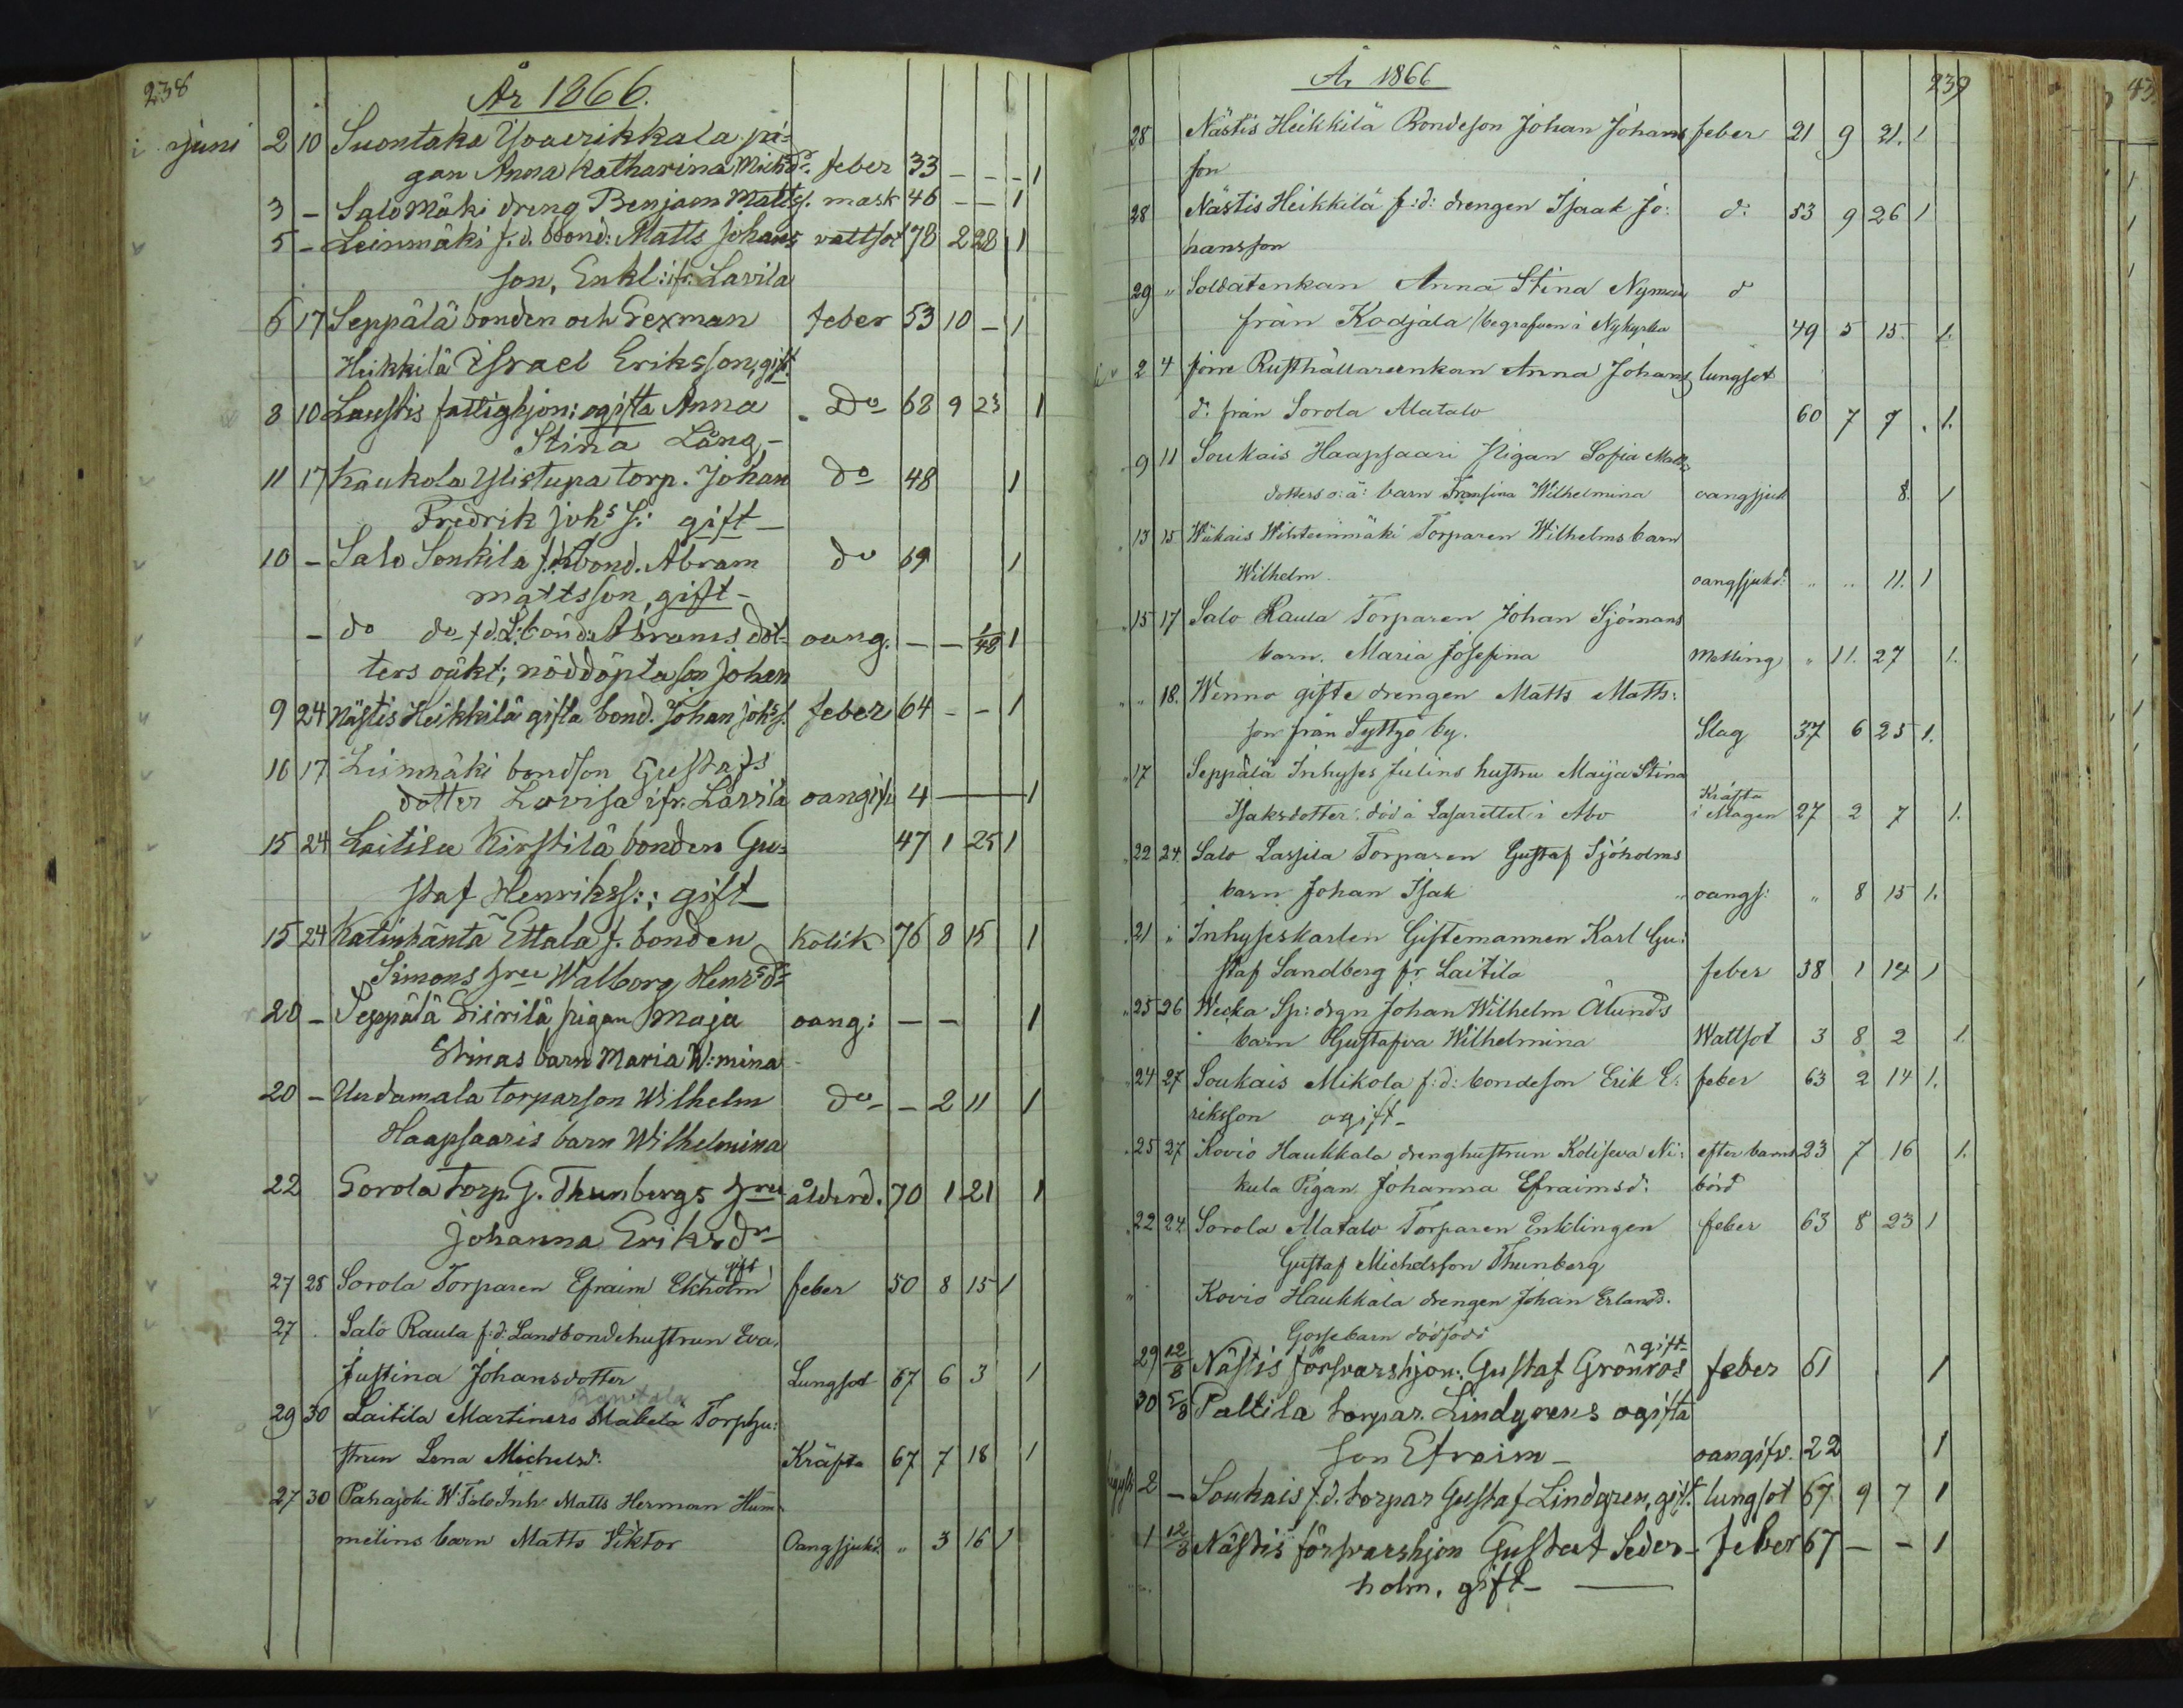 238
År 1866.
juni 2 10 Suontaka Yoaerikkala pi-
gan Anna Katharina Michsdr. feber 33 – – – 1
3 – Salo Mäki dreng Benjam Matts. mask 46 – – 1
5 – Leinmäki f.d. bond: Matts Johans vattsot 78 2 28 1
son, Enkl: ifr. Lavila
6 17 Seppälä bonden och Sexman feber 53 10 – 1
Heikkilä Israel Eriksson, gift
8 10 Laustis fattighjon: ogifta Anna Do 68 9 23 1
Stina Lång –
11 17 Kaukola Ylistupa torp. Johan do 48 1
Fredrik Johs S: gift –
10 – Salo Sonkila f.d. bond. Abram do 69 1
mattsson, gift –
– do do f.d. L:bond: Abrams dot- oang. – – 1/48 1
ters oäkt; nöddöpta son Johan
9 24 Nästis Heikkilä gifta bond. Johan Johs s. feber 64 – – 1
16 17 Leinmäki bondson Gustafs
dotter Lovisa ifr. Lavila oangifv 4 – 1
15 24 Laitila Kirstilä bonden Gu- 47 1 25 1
staf Henrikss:; gift –
15 24 Katinhänta Ettala f. bonden Kolik 76 8 15 1
Simons hru Walborg Henrsdr
20 – Seppälä Siirilä pigan Maja oang: – – 1
Stinas barn Maria W:mina
20 – Untamala torparson Wilhelm do – – 2 11 1
Haapsaaris barn Wilhelmina
22 Sorola torp. G. Thunbergs hru ålderd. 70 1 21 1
Johanna Eriksdr –
gift
27 28 Sorola Torparen Efraim Ekholm feber 50 8 15 1
27 . Salo Raula f:d: Landbondehustrun Eva
Justina Johansdotter Lungsot 67 6 3 1
Rantala
29 30 Laitila Martiners Makela Torphu:
strun Lena Michelsd: Kräfta 67 7 18 1
27 30 Pahajoki W.Talo Inh: Matts Herman Hum
melins barn Matts Viktor Oangsjukd. " 3 16 1
År 1866
239
28 Nästis Heikkilä Bondeson Johan Johans feber 21 9 21. 1
son
28 Nästis Heikkilä f:d: drengen Isaak Jo: d: 53 9 26 1
hansson
29 " Soldatenkan Anna Stina Nyman d
från Kodjala /begrafven i Nykyrka 49 5 15. 1.
2 4 förre Rusthållareenkan Anna Johans lungsot
d: från Sorola Matalo 60 7 7 . 1.
9 11 Soukais Haapsaari Pigan Sofia Matts
dotters o:ä: barn Fransina Wilhelmina oangsjuk 8. 1
13 15 Torparen Wilhelms barn
Wilhelm. oangsjukd: " " 11. 1
15 17 Salo Raula Torparen Johan Sjömans
barn. Maria Josefina Messling " 11. 27 1.
" " 18. Wenno gifte drengen Matts Matts:
son från Syttyö by. Slag 37 6 25 1.
17 Seppälä Inhyses Julins hustru Maija Stina
Isaksdotter: död å Lasarettet i Åbo Kräfta i Magen 27 2 7 1.
22 24. Salo Lassila Torparen Gustaf Sjöholms
barn Johan Isak " oangf: " 8 15 1.
21 " Inhyseskarlen Giftemannen Karl Gu:
staf Sandberg fr. Laitila feber 38 1 14 1
25 26 Wecka Sp: drgn Johan Wilhelm Ålunds
barn Gustafva Wilhelmina Wattsot 3 8 2 1.
24 27 Soukais Mikola f:d: bondeson Erik E: feber 63 2 14 1.
riksson ogift –
25 27 Kovio Haukkala drenghustrun Ni: efter barns 23 7 16 1.
kula Pigan Johanna Efraimsd: börd
22 24 Sorola Matalo Torparen Enklingen feber 63 8 23 1
Gustaf Michelsson Thunberg
" Kovio Haukkala drengen Johan Erlands.
Gossebarn dödfödt
gift
29 12/8 Nästis försvarshjon: Gustaf Grönroos feber 61 1
30 5/8 Paltila torpar. Lindgrens ogifta
son Efraim – oangifv. 22 1
Augusti 2 – Soukais f.d. torpar Gustaf Lindgren, gift lungsot 67 9 7 1
1 12/8 Nästis försvarshjon Gustaf Seder- feber 67 – – 1
holm, gift –
43